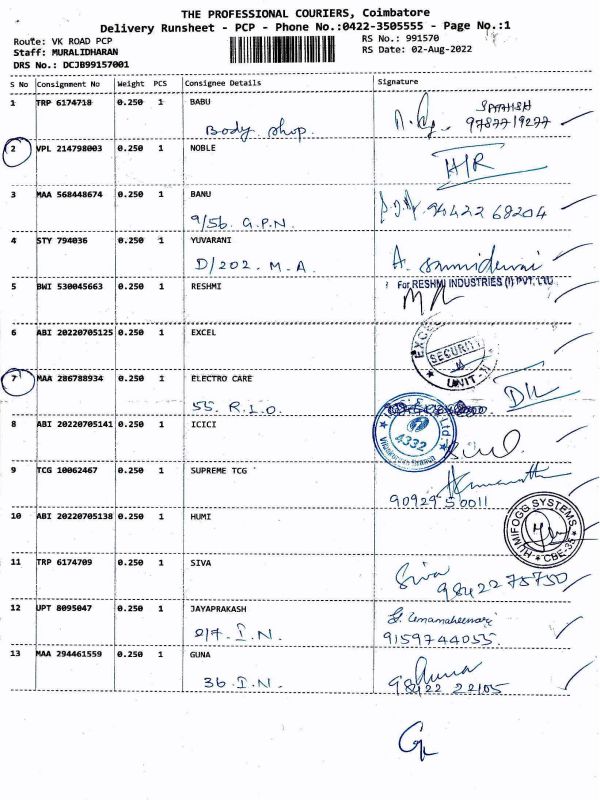 THE PROFESSIONAL COURIERS, Coimbatore
Delivery Runsheet - PCP - Phone No.:0422-3505555 - Page No.:1
Route: VK ROAD PCP RS No.: 991570
Staff: MURALIDHARAN RS Date: 02-Aug-2022
DRS No.: DCJB99157001
S No Consignment No Weight PCS Consignee Details Signature
1 TRP 6174718 0.250 1 BABU
Body shop. 9787719277
2 VPL 214798003 0.250 1 NOBLE
H/R
3 MAA 568448674 0.250 1 BANU
9/56. G.P.N. 94422 68204
4 STY 794036 0.250 1 YUVARANI
D/202. M.A.
5 BWI 530045663 0.250 1 RESHMI For RESHMI INDUSTRIES (I) PVT. LTD
6 ABI 20220705125 0.250 1 EXCEL
SECURITY
UNIT-II
7 MAA 286788934 0.250 1 ELECTRO CARE
55. R.I.O.
8 ABI 20220705141 0.250 1 ICICI
4332
9 TCG 10062467 0.250 1 SUPREME TCG
90929 50011
10 ABI 20220705138 0.250 1 HUMI
HUMIFOGG SYSTEMS
CBE-35
11 TRP 6174709 0.250 1 SIVA
Siva
98422 75750
12 UPT 8095047 0.250 1 JAYAPRAKASH
I.N. 9159744055
13 MAA 294461559 0.250 1 GUNA
Guna
36. I.N. 98422 22105